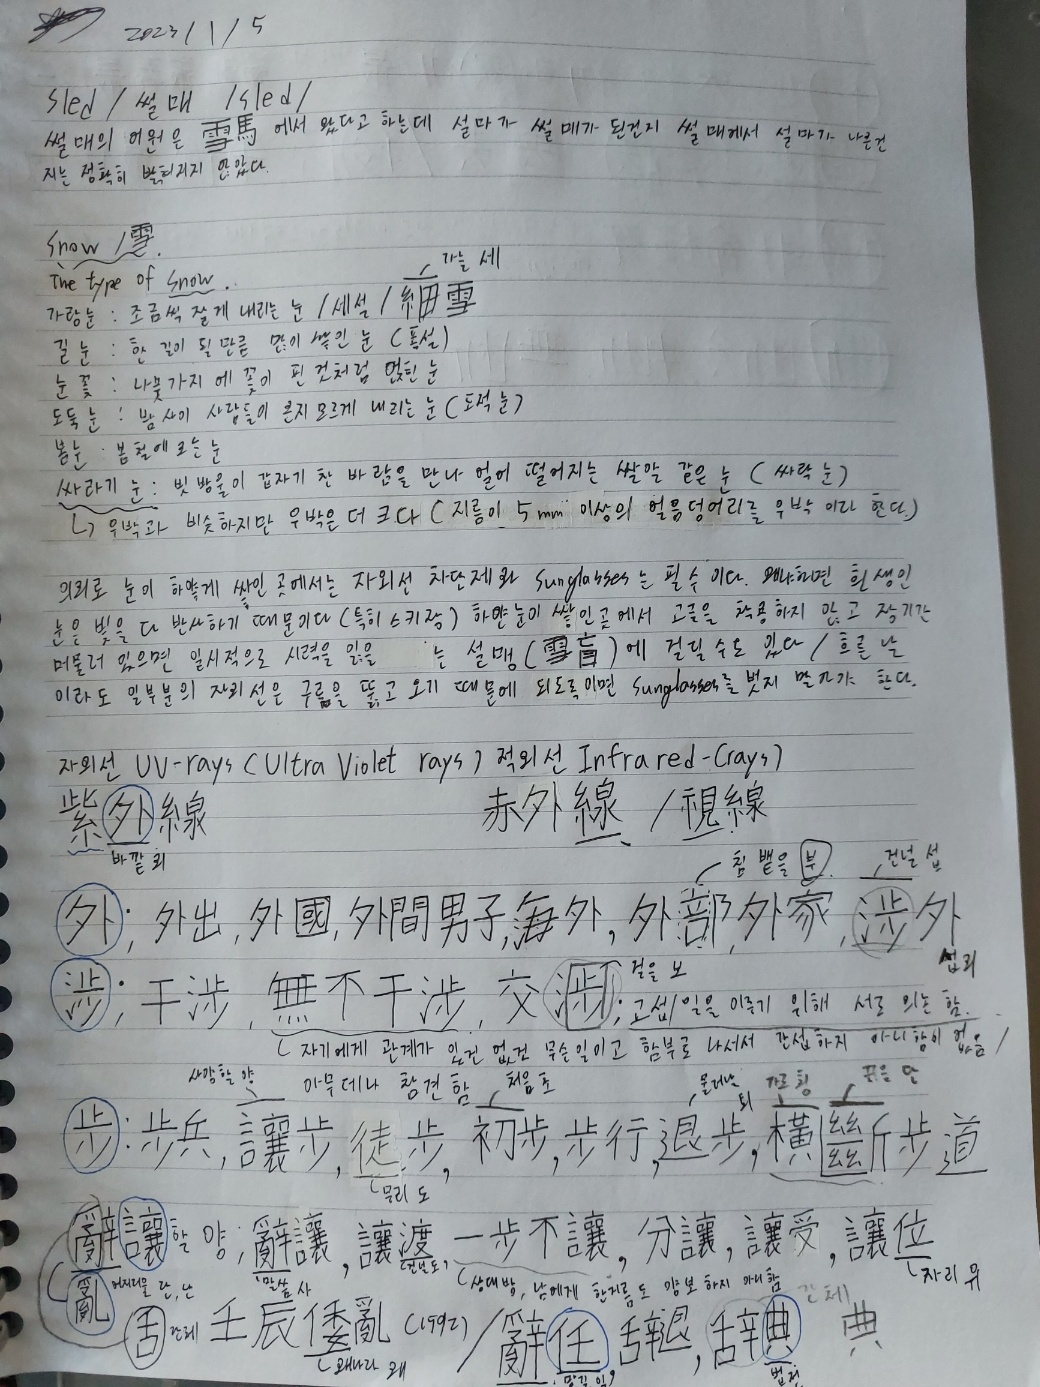 2023/1/5
sled / 썰매 /sled/
썰매의 어원은 雪馬 에서 왔다고 하는데 설마가 썰매가 된건지 썰매에서 설마가 나온건
지는 정확히 밝혀지지 않았다.
snow /雪.
The type of snow.
가늘 세
가랑눈 : 조금씩 잘게 내리는 눈 /세설 /細雪
길눈 : 한 길이 될 만큼 많이 쌓인 눈 (폭설)
눈꽃 : 나뭇가지에 꽃이 핀 것처럼 얹힌 눈
도둑눈 : 밤사이 사람들이 모르게 내리는 눈 (도적눈)
봄눈 : 봄철에 오는 눈
싸라기 눈 : 빗방울이 갑자기 찬 바람을 만나 얼어 떨어지는 쌀알 같은 눈 (싸락눈)
우박과 비슷하지만 우박은 더 크다 (지름이 5mm 이상의 얼음덩어리를 우박이라 한다.)
의외로 눈이 하얗게 쌓인 곳에서는 자외선 차단제와 sunglasses는 필수이다. 왜냐하면 흰색인
눈은 빛을 다 반사하기 때문이다 (특히 스키장) 하얀눈이 쌓인곳에서 고글을 착용하지 않고 장기간
머물러 있으면 일시적으로 시력을 잃을 는 설맹(雪盲)에 걸릴 수도 있다 / 흐린 날
이라도 일부분의 자외선은 구름을 뚫고 오기 때문에 되도록이면 sunglasses를 벗지 말라고 한다.
자외선 UV-rays (Ultra Violet rays) 적외선 Infrared-(rays)
紫外線 赤外線 /視線
바깥 외
침 뱉을 부 건널 섭
外; 外出, 外國, 外間男子, 海外, 外部, 外家, 涉外
섭외
涉; 干涉, 無不干涉, 交涉; 교섭/일을 이루기 위해 서로 의논함.
걸을 보
자기에게 관계가 있건 없건 무슨일이고 함부로 나서서 간섭하지 아니함이 없음/
아무데나 참견함
사양할 양 처음 초 물러날 퇴 가로 횡 끊을 단
步: 步兵, 讓步, 徒步, 初步, 步行, 退步, 橫斷步道
무리 도
辭讓할 양; 辭讓, 讓渡, 一步不讓, 分讓, 讓受, 讓位
어지러울 란, 난 말씀 사 건널 도 상대방, 남에게 한걸음도 양보하지 아니함 자리 위
亂 舌 간체 壬辰倭亂 (1592) / 辭任 辞退, 辞典 간체 典
왜나라 왜 맡길 임 법전